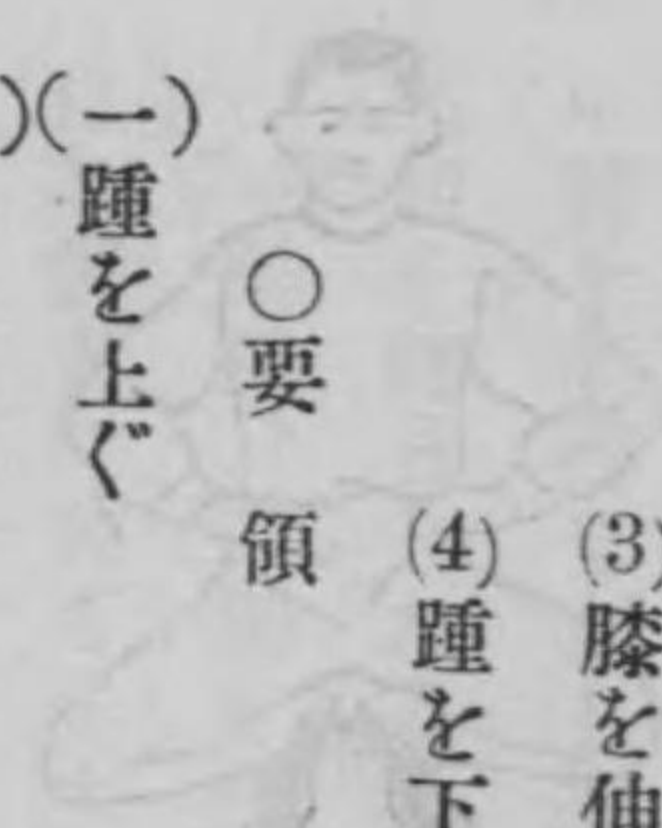 (3)膝を伸
(4)踵を下
○要領
(一)踵を上ぐ